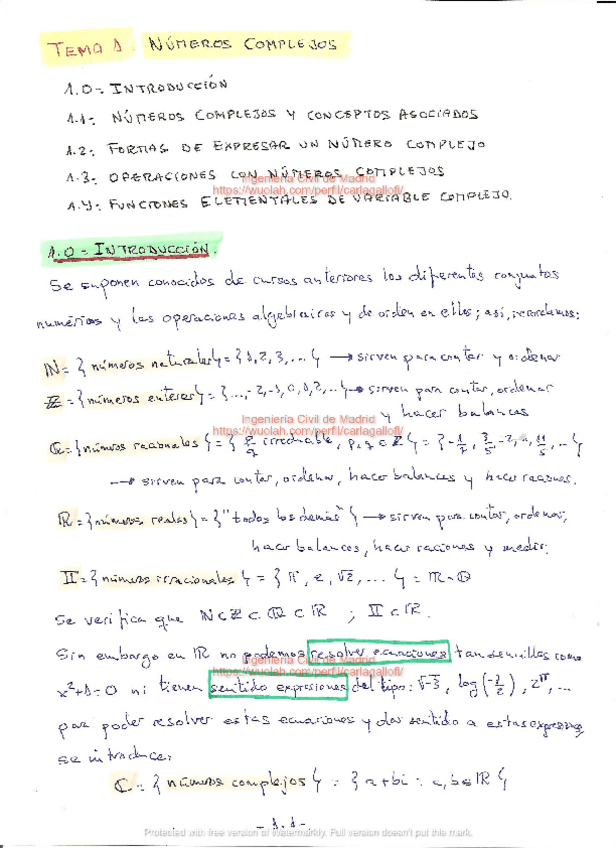 TEMA 1. NÚMEROS COMPLEJOS
1.0-. INTRODUCCIÓN
1.1-. NÚMEROS COMPLEJOS Y CONCEPTOS ASOCIADOS
1.2-. FORMAS DE EXPRESAR UN NÚMERO COMPLEJO
1.3-. OPERACIONES CON NÚMEROS COMPLEJOS
Ingeniería Civil de Madrid
https://wuolah.com/perfil/carlagallofl/
1.4-. FUNCIONES ELEMENTALES DE VARIABLE COMPLEJO.
1.0-. INTRODUCCIÓN.
Se suponen conocidos de cursos anteriores los diferentes conjuntos
numéricos y las operaciones algebraicas y de orden en ellos; así, recordamos:
ℕ = { números naturales } = { 1, 2, 3, ... } → sirven para contar y ordenar
ℤ = { números enteros } = { ..., -2, -1, 0, 1, 2, ... } → sirven para contar, ordenar
y hacer balances
Ingeniería Civil de Madrid
https://wuolah.com/perfil/carlagallofl/
ℚ = { números racionales } = { p/q irreducible, p, q ∈ ℤ } =
→ sirven para contar, ordenar, hacer balances y hacer raciones.
ℝ = { números reales } = { "todos los demás" } → sirven para contar, ordenar,
hacer balances, hacer raciones y medir.
𝕀 = { números irracionales } = { π, e, √2, ... } = ℝ - ℚ
Se verifica que ℕ ⊂ ℤ ⊂ ℚ ⊂ ℝ ; 𝕀 ⊂ ℝ.
Sin embargo en ℝ no podemos resolver ecuaciones tan sencillas como
Ingeniería Civil de Madrid
https://wuolah.com/perfil/carlagallofl/
x²+1=0 ni tienen sentido expresiones del tipo: √-3, log(-1/2), 2^π, ...
para poder resolver estas ecuaciones y dar sentido a estas expresiones
se introduce:
ℂ = { números complejos } = { a+bi : a, b ∈ ℝ }
- 1.1 -
Protected with free version of Watermarkly. Full version doesn't put this mark.